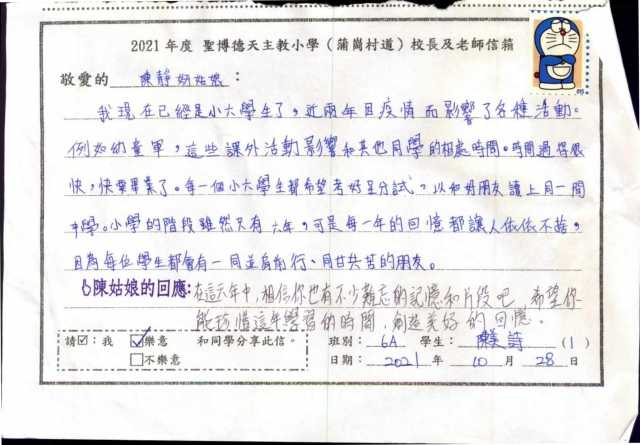 2021年度 聖博德天主教小學（蒲崗村道）校長及老師信箱
敬愛的 陳靜姻姑娘：
我現在已經是小六學生了，近兩年因疫情而影響了各種活動。
例如幼童軍，這些課外活動影響和其他同學的相處時間。時間過得很
快，快要畢業了。每一個小六學生都希望考好呈分試，以和好朋友讀上同一間
中學。小學的階段雖然只有六年，可是每一年的回憶都讓人依依不捨，
因為每位學生都會有一同並肩前行、同甘共苦的朋友。
陳姑娘的回應：在這六年中，相信你也有不少難忘的記憶和片段吧，希望你
能珍惜這年學習的時間，創造美好的回憶。
請☑：我 ☑樂意 和同學分享此信。 班別：6A 學生：陳美詩 (1)
☐不樂意 日期：2021年10月28日